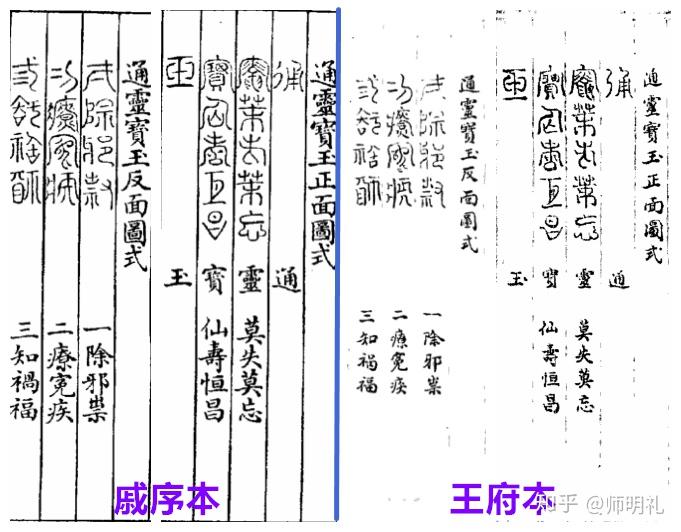 通靈寶玉正面圖式
通
靈 莫失莫忘
寶 仙壽恒昌
玉
通靈寶玉反面圖式
一除邪祟
二療寃疾
三知禍福
戚序本
通靈寶玉正面圖式
通
靈 莫失莫忘
寳 仙壽恒昌
玉
通靈寶玉反面圖式
一除邪祟
二療寃疾
三知禍福
王府本
知乎 @师明礼